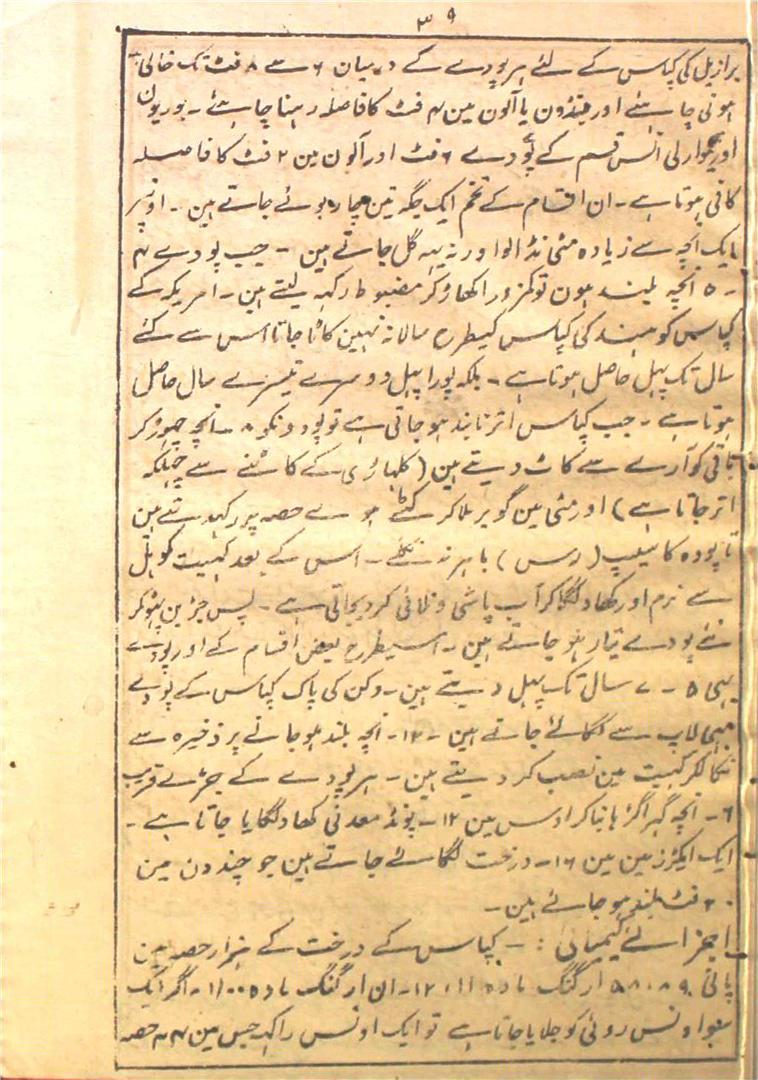 ۳۹
برازیل کی کپاس کے لئے ہر پودے کے درمیان ۶ سے ۸ فٹ تک خالی
ہونی چاہئے اور مینڈون یا آلون مین ۴ فٹ کا فاصلہ رہنا چاہئے - بوربون
اور قسم کے پودے ۶ فٹ اور آلون مین ۲ فٹ کا فاصلہ
کافی ہوتا ہے - ان اقسام کے تخم ایک جگہ تین چار بوئے جاتے ہین - اونپر
ایک انچہ سے زیادہ مٹی نڈالو ورنہ یہہ گل جاتے ہین - جب پودے ۴
- ۵ انچہ بلند ہون تو کمزور اکھاڑ کر مضبوط رکہہ لیتے ہین - امریکہ کے
کپاس کو ہند کی کپاس کیطرح سالانہ نہین کاٹا جاتا اس سے کئے
سال تک پہل حاصل ہوتا ہے - بلکہ پورا پہل دوسرے تیسرے سال حاصل
ہوتا ہے - جب کپاس اترنا بند ہو جاتی ہے تو پودونکو ۸ - انچہ چہوڑ کر
باقی کو آرے سے کاٹ دیتے ہین (کلہاڑی کے کاٹنے سے چہلکہ
اتر جاتا ہے) اور مٹی مین گوبر ملا کر کٹے ہوے حصہ پر رکہدتے ہین
تا پودہ کا سیپ (رس) باہر نہ نکلے - اس کے بعد کہیت کو ہل
سے نرم اور کھاد لگا کر آب پاشی و نلائی کر دیجاتی ہے - پس جڑین پہوٹ کر
نئے پودے تیار ہو جاتے ہین - اسیطرح بعض اقسام کے اور پودے
یہی ۵ - ۷ سال تک پہل دیتے ہین - دکن کی پاک کپاس کے پودے
سے لگائے جاتے ہین - ۱۲ - انچہ بلند ہو جانے پر ذخیرہ سے
نکالکر کہیت مین نصب کر دیتے ہین - ہر پودے کے جڑ کے قریب
۶ - انچہ گہرا گڑہا بنا کر اوس مین ۱۲ - پونڈ معدنی کھاد لگایا جاتا ہے -
ایک ایکڑ زمین مین ۱۶ - درخت لگائے جاتے ہین جو چند دن مین
۲۰ فٹ بلند ہو جاتے ہین -
اجزائے کیمیائی : - کپاس کے درخت کے ہزار حصہ مین
پانی ارگنگ مادہ ان ارگنگ مادہ اگر ایک
سو اونس روئی کو جلایا جاتا ہے تو ایک اونس راکہہ جس مین ۴۴ حصہ